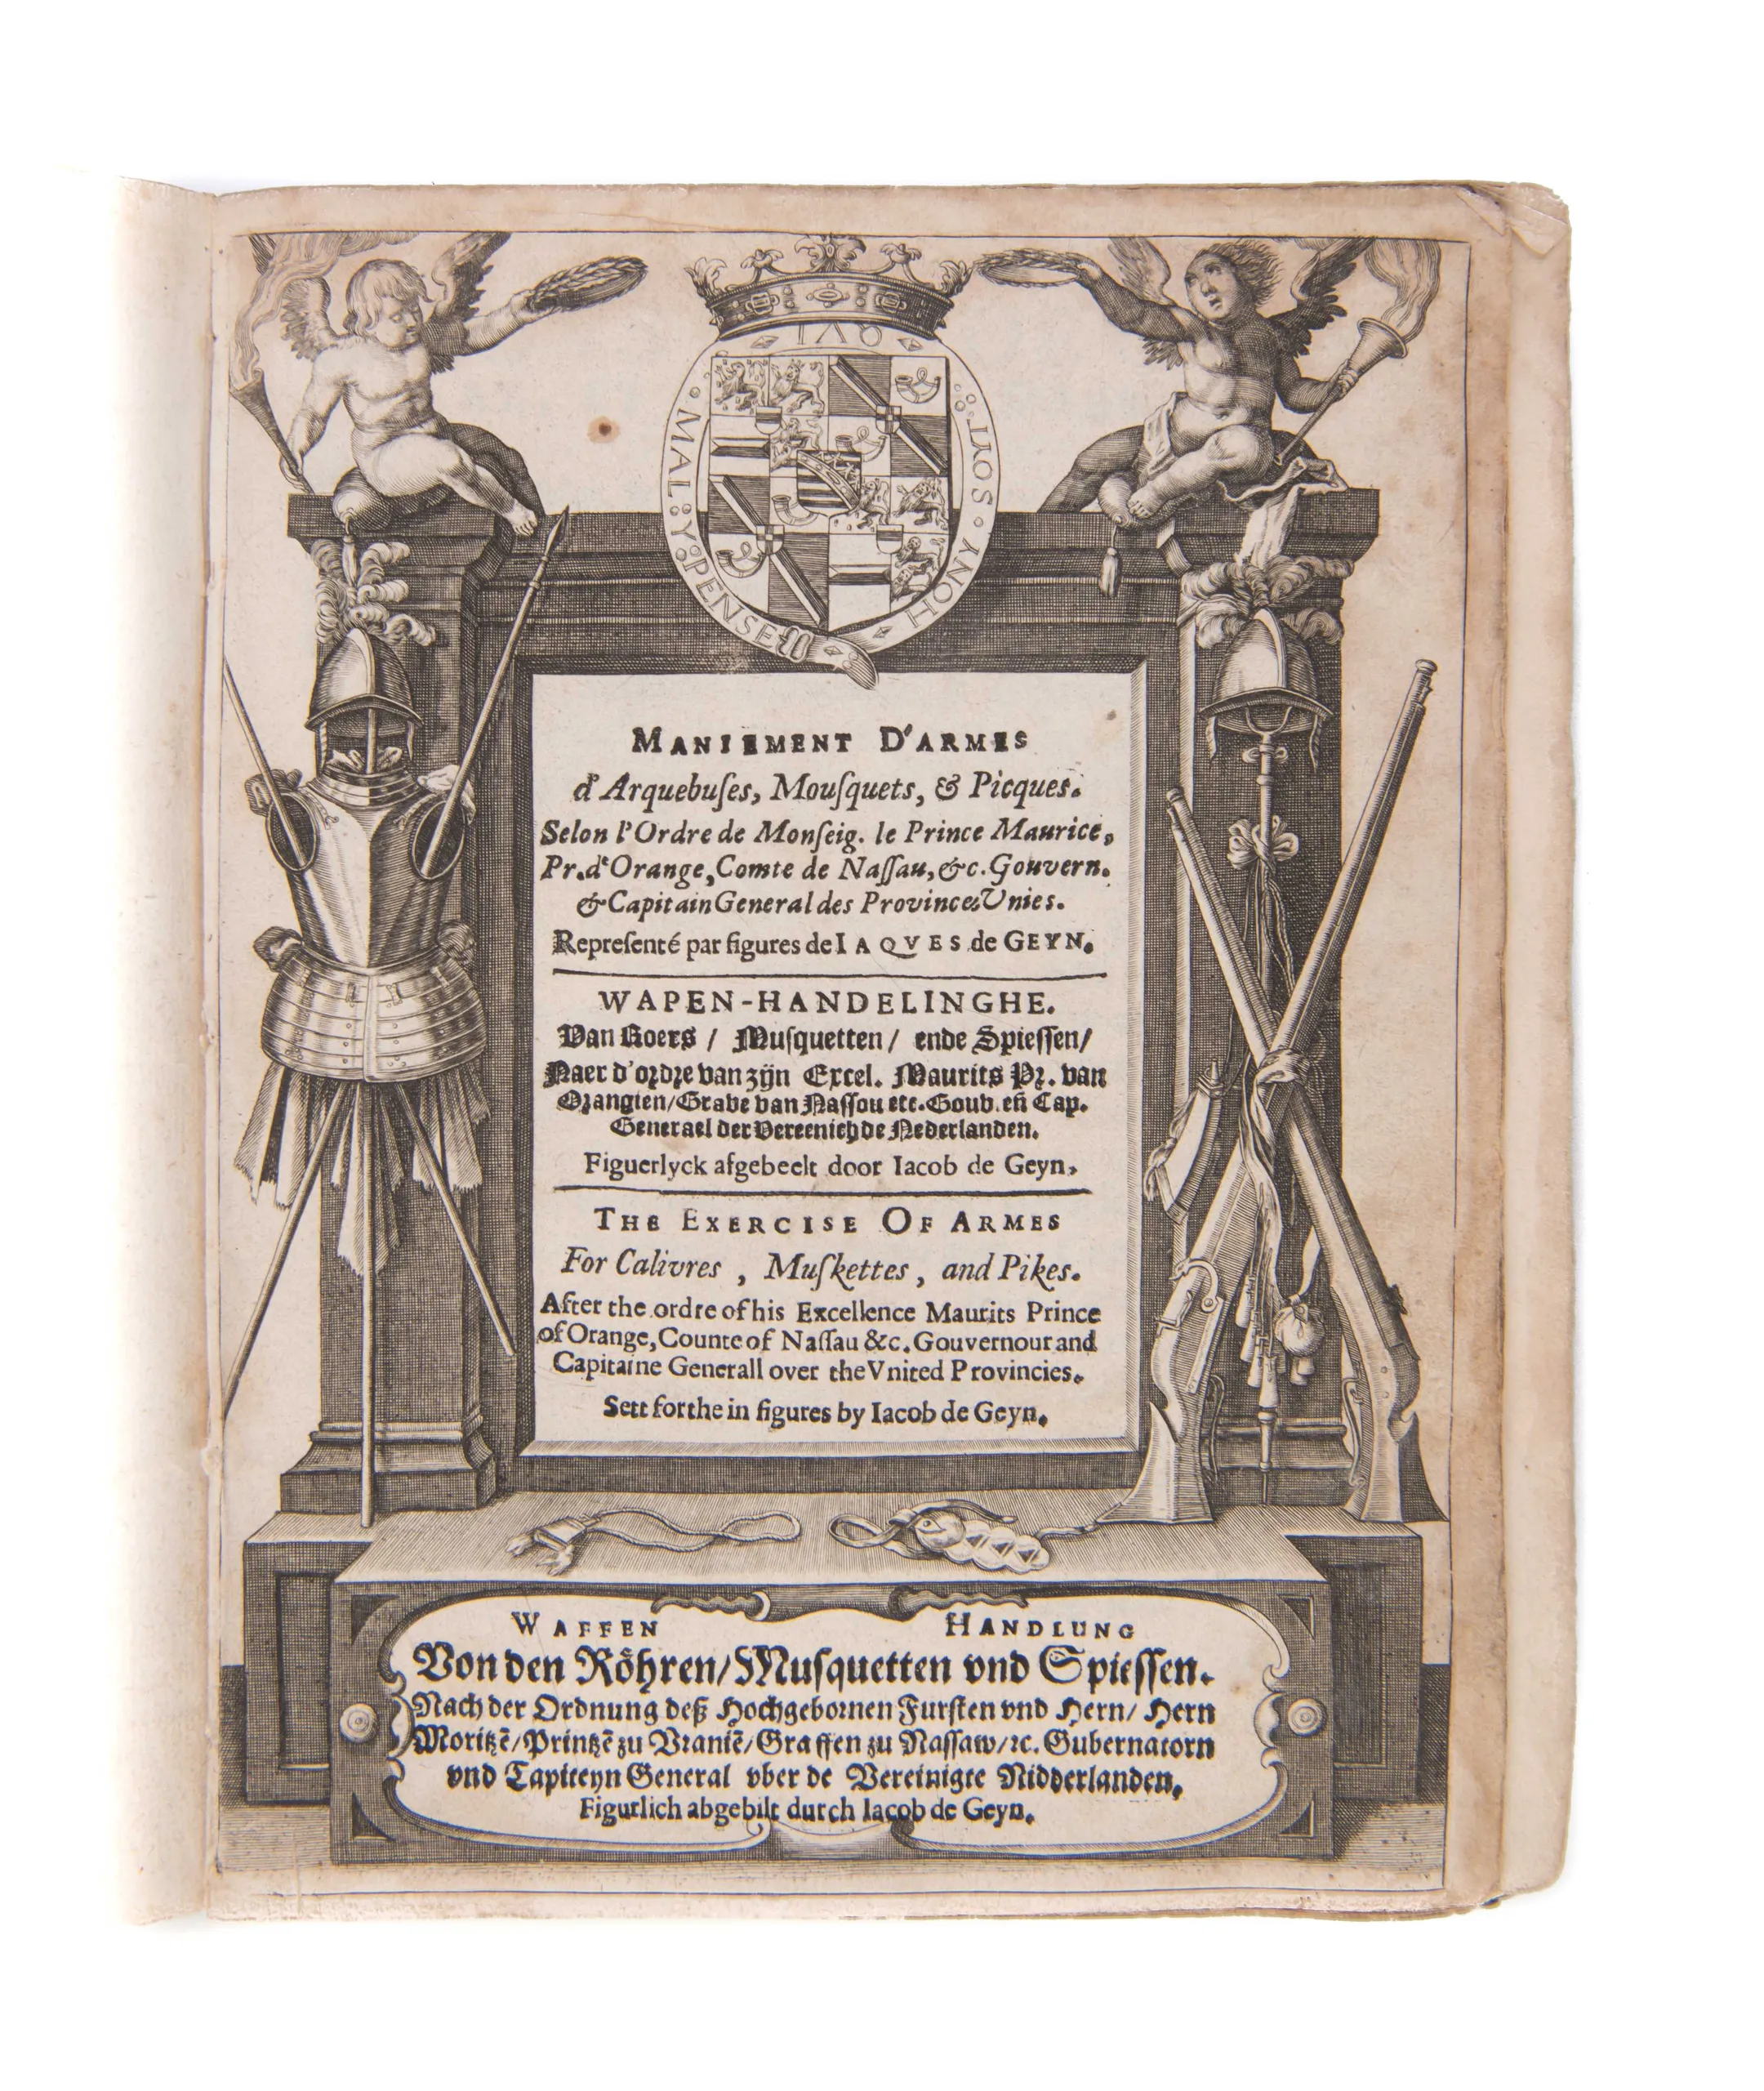 HONY · SOYT · QVI MAL Y PENSE
MANIEMENT D'ARMES
d'Arquebuſes, Mouſquets, & Picques.
Selon l'Ordre de Monſeig. le Prince Maurice,
Pr. d'Orange, Comte de Naſſau, &c. Gouvern.
& Capitain General des Provinces Unies.
Repreſenté par figures de IAQVES de GEYN.
WAPEN-HANDELINGHE.
Van Roers / Muſquetten / ende Spieſſen /
Naer d'ordre van zijn Excel. Maurits Pr. van
Orangien / Grave van Naſſou etc. Gouv. eñ Cap.
Generael der Vereenichde Nederlanden.
Figuerlyck afgebeelt door Iacob de Geyn,
THE EXERCISE OF ARMES
For Calivres , Muſkettes , and Pikes.
After the ordre of his Excellence Maurits Prince
of Orange, Counte of Naſſau &c. Gouvernour and
Capitaine Generall over the Vnited Provincies.
Sett forthe in figures by Iacob de Geyn.
WAFFEN HANDLUNG
Von den Röhren / Muſquetten vnd Spieſſen.
Nach der Ordnung deß Hochgebornen Furſten vnd Hern / Hern
Moritzē / Printzē zu Vraniē / Graffen zu Naſſaw / ꝛc. Gubernatorn
vnd Capiteyn General vber de Vereinigte Nidderlanden.
Figurlich abgebilt durch Iacob de Geyn.